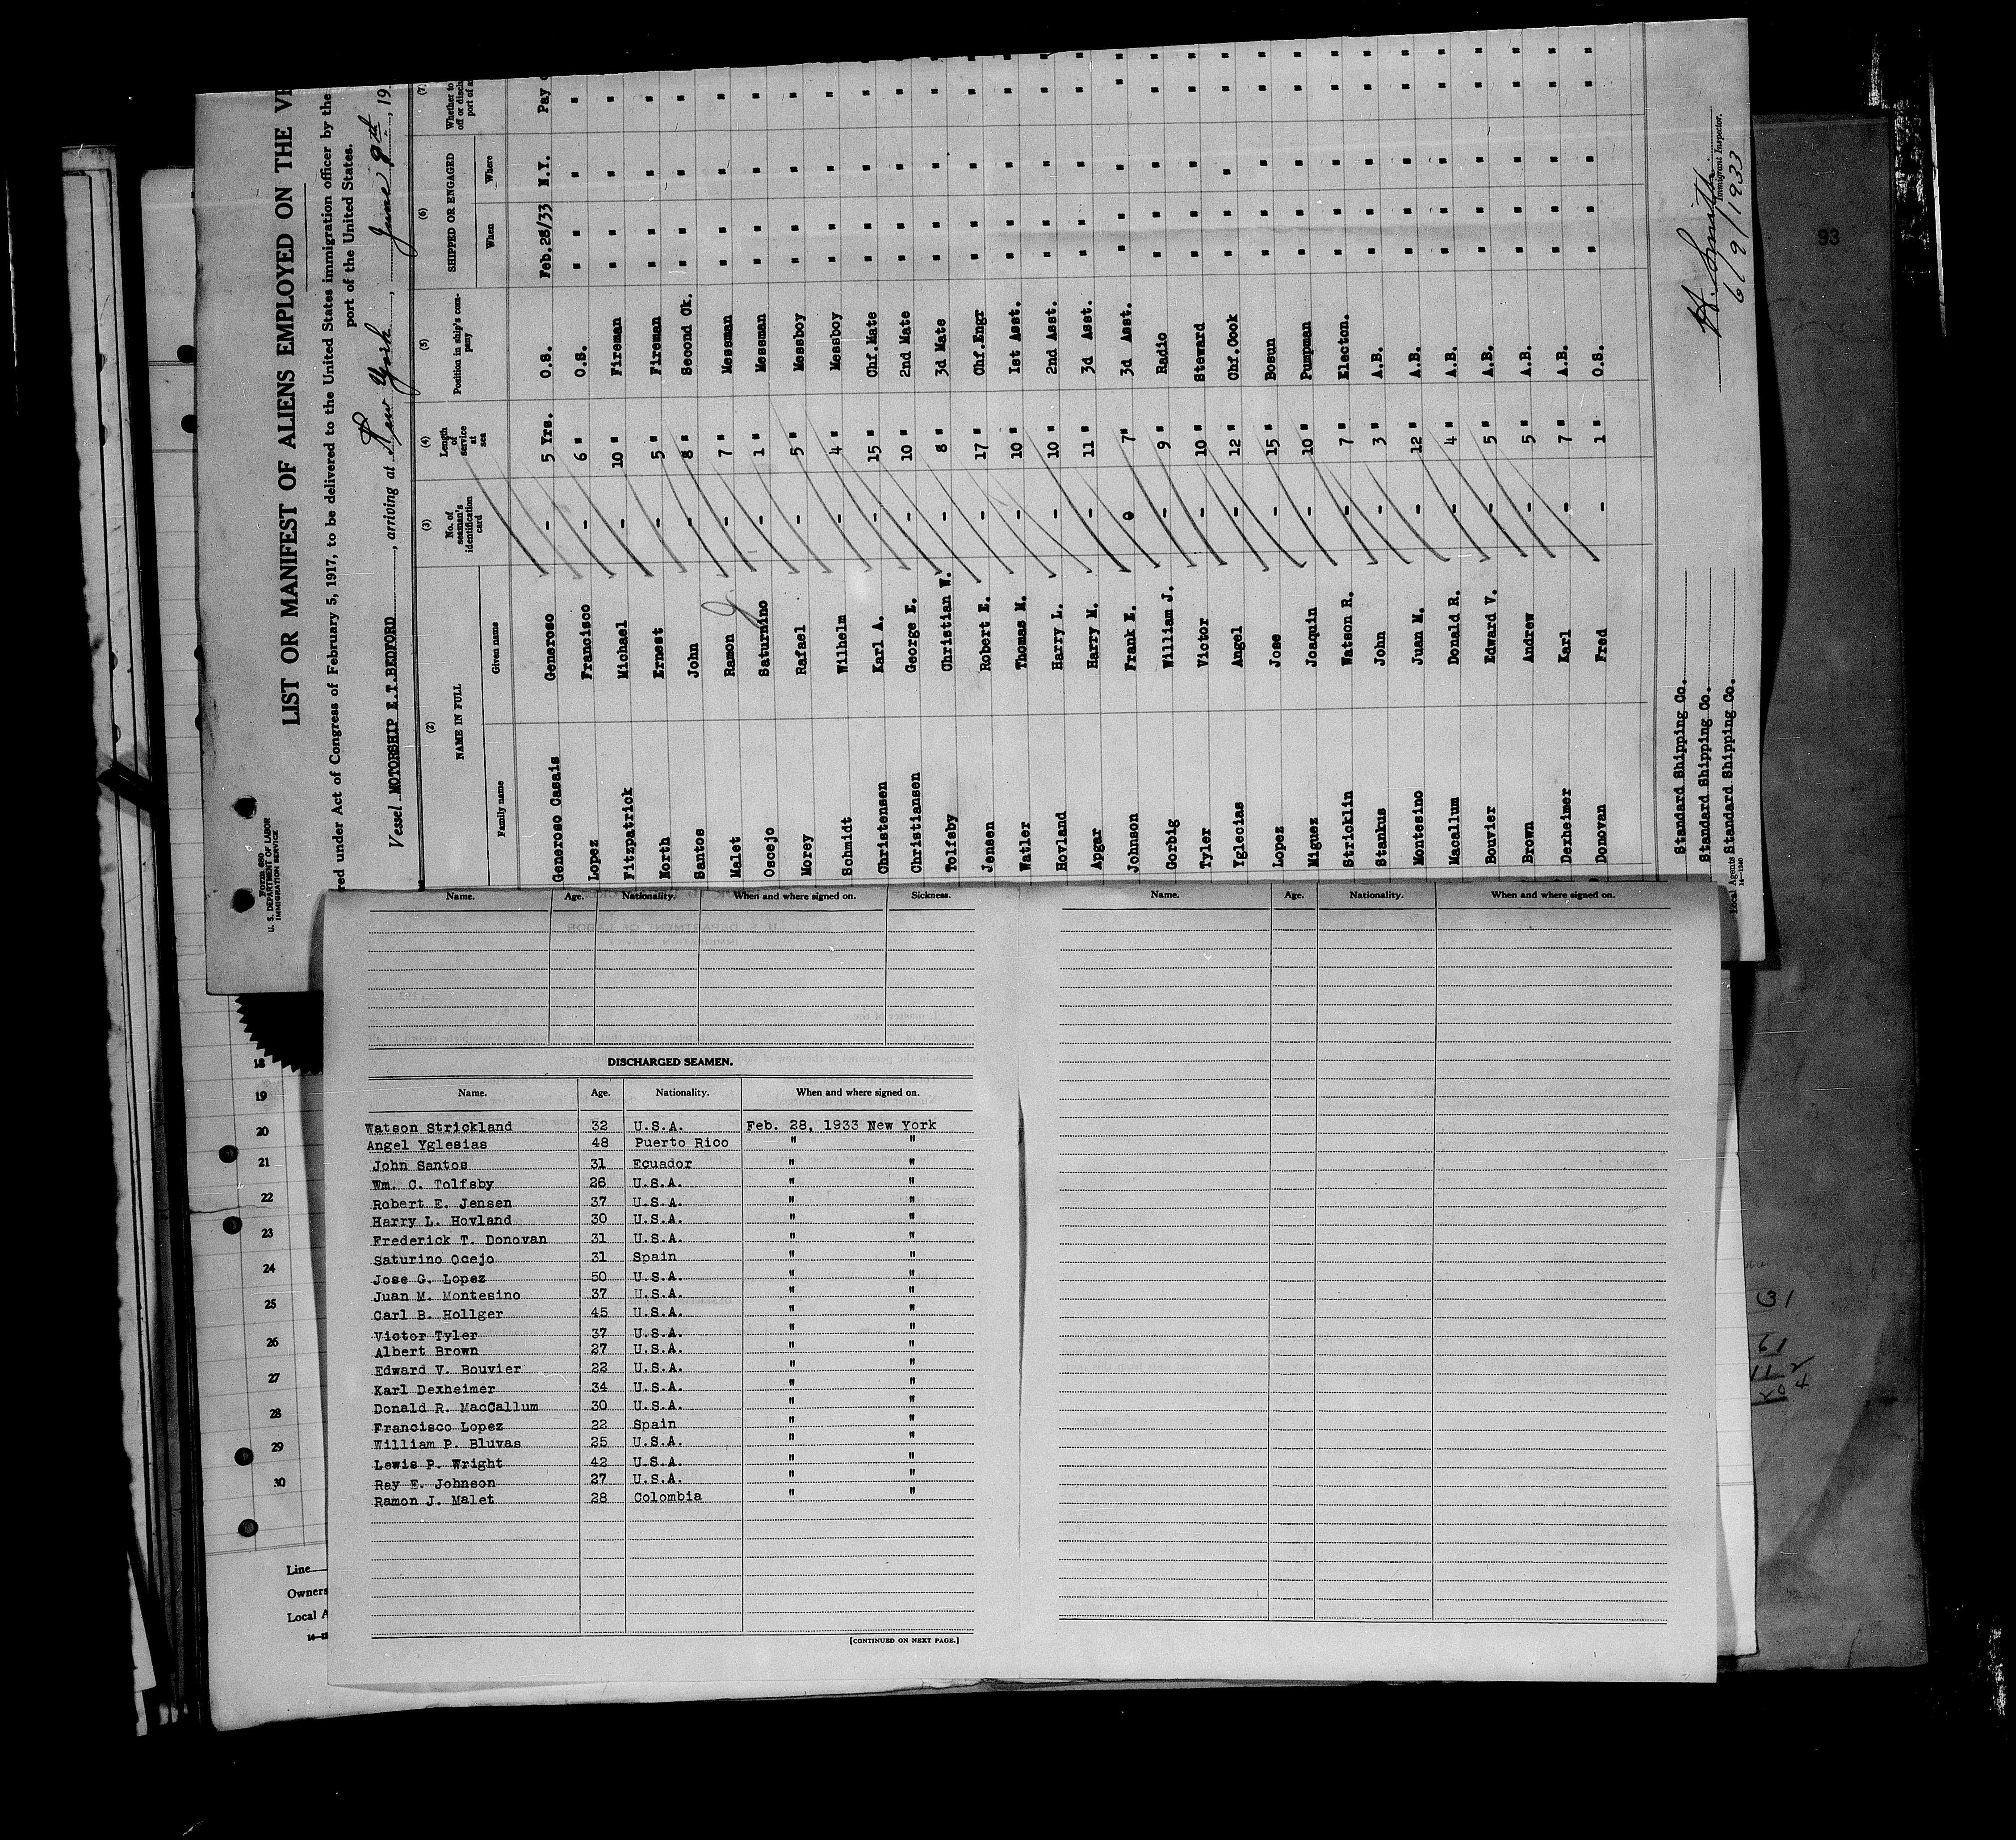 Form 680
U. S. DEPARTMENT OF LABOR
IMMIGRATION SERVICE
LIST OR MANIFEST OF ALIENS EMPLOYED ON THE VE
red under Act of Congress of February 5, 1917, to be delivered to the United States immigration officer by the
port of the United States.
Vessel MOTORSHIP E.T.BEDFORD, arriving at New York, June 9th, 19
(2) (3) (4) (5) (6) (7)
NAME IN FULL No. of seaman's identification card Length of service at sea Position in ship's company SHIPPED OR ENGAGED Whether to
off or disch
port of a
Family name Given name When Where
Generoso Casais Generoso - 5 Yrs. O.S. Feb.28/33 N.Y. Pay
Lopez Francisco - 6 " O.S. " " " "
Fitzpatrick Michael - 10 " Fireman " " " "
North Ernest - 5 " Fireman " " " "
Santos John - 8 " Second Ck. " " " "
Malet Ramon - 7 " Messman " " " "
Oscejo Saturnino - 1 " Messman " " " "
Morey Rafael - 5 " Messboy " " " "
Schmidt Wilhelm - 4 " Messboy " " " "
Christensen Karl A. - 15 " Chf.Mate " " " "
Christiansen George E. - 10 " 2nd Mate " " " "
Tolfsby Christian W. - 8 " 3d Mate " " " "
Jensen Robert E. - 17 " Chf.Engr " " " "
Watler Thomas M. - 10 " 1st Asst. " " " "
Hovland Harry L. - 10 " 2nd Asst. " " " "
Apgar Harry M. - 11 " 3d Asst. " " " "
Johnson Frank E. 7" 3d Asst. " " " "
Gorbig William J. - 9 " Radio " " " "
Tyler Victor - 10 " Steward " " " "
Yglecias Angel - 12 " Chf.Cook " " " "
Lopez Jose - 15 " Bosun " " " "
Miguez Joaquin - 10 " Pumpman " " " "
Stricklin Watson R. - 7 " Electcn. " " " "
Stankus John - 3 " A.B. " " " "
Montesino Juan M. - 12 " A.B. " " " "
Macallum Donald R. - 4 " A.B. " " " "
Bouvier Edward V. - 5 " A.B. " " " "
Brown Andrew - 5 " A.B. " " " "
Dexheimer Karl - 7 " A.B. " " " "
Donovan Fred - 1 " O.S. " " " "
Standard Shipping Co.
Standard Shipping Co.
Local Agents Standard Shipping Co.
14—1240
H. Smith
Immigrant Inspector.
6/9/1933
93
Name. Age. Nationality. When and where signed on. Sickness.
DISCHARGED SEAMEN.
Name. Age. Nationality. When and where signed on.
Watson Strickland 32 U.S.A. Feb. 28, 1933 New York
Angel Yglesias 48 Puerto Rico " "
John Santos 31 Ecuador " "
Wm. C. Tolfsby 26 U.S.A. " "
Robert E. Jensen 37 U.S.A. " "
Harry L. Hovland 30 U.S.A. " "
Frederick T. Donovan 31 U.S.A. " "
Saturino Ocejo 31 Spain " "
Jose G. Lopez 50 U.S.A. " "
Juan M. Montesino 37 U.S.A. " "
Carl B. Hollger 45 U.S.A. " "
Victor Tyler 37 U.S.A. " "
Albert Brown 27 U.S.A. " "
Edward V. Bouvier 22 U.S.A. " "
Karl Dexheimer 34 U.S.A. " "
Donald R. MacCallum 30 U.S.A. " "
Francisco Lopez 22 Spain " "
William P. Bluvas 25 U.S.A. " "
Lewis P. Wright 42 U.S.A. " "
Ray E. Johnson 27 U.S.A. " "
Ramon J. Malet 28 Colombia " "
[CONTINUED ON NEXT PAGE.]
Name. Age. Nationality. When and where signed on.
18
19
20
21
22
23
24
25
26
27
28
29
30
Line
Owners
Local A
31
61